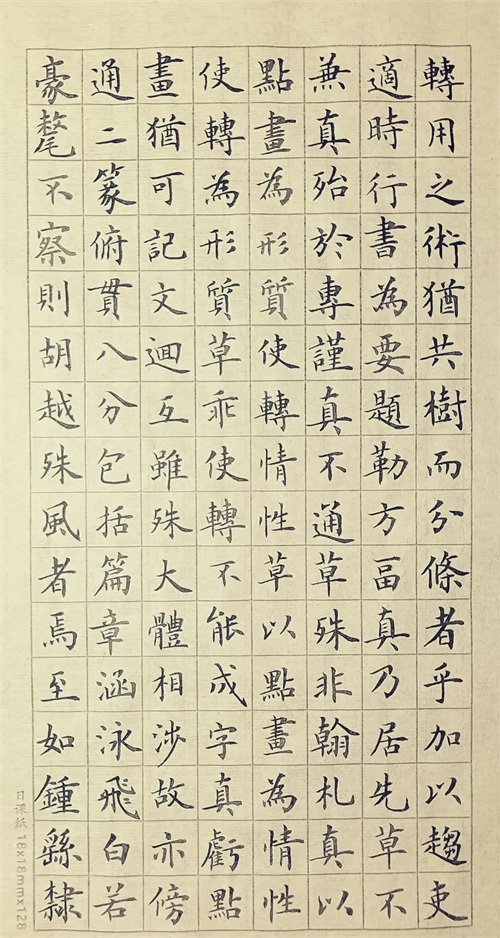 轉用之術猶共樹而分條者乎加以趨吏
適時行書為要題勒方畐真乃居先草不
兼真殆於專謹真不通草殊非翰札真以
點畫為形質使轉情性草以點畫為情性
使轉為形質草乖使轉不能成字真虧點
畫猶可記文迴互雖殊大體相涉故亦傍
通二篆俯貫八分包括篇章涵泳飛白若
豪氂不察則胡越殊風者焉至如鍾繇隸
日课纸 18x18mmx128